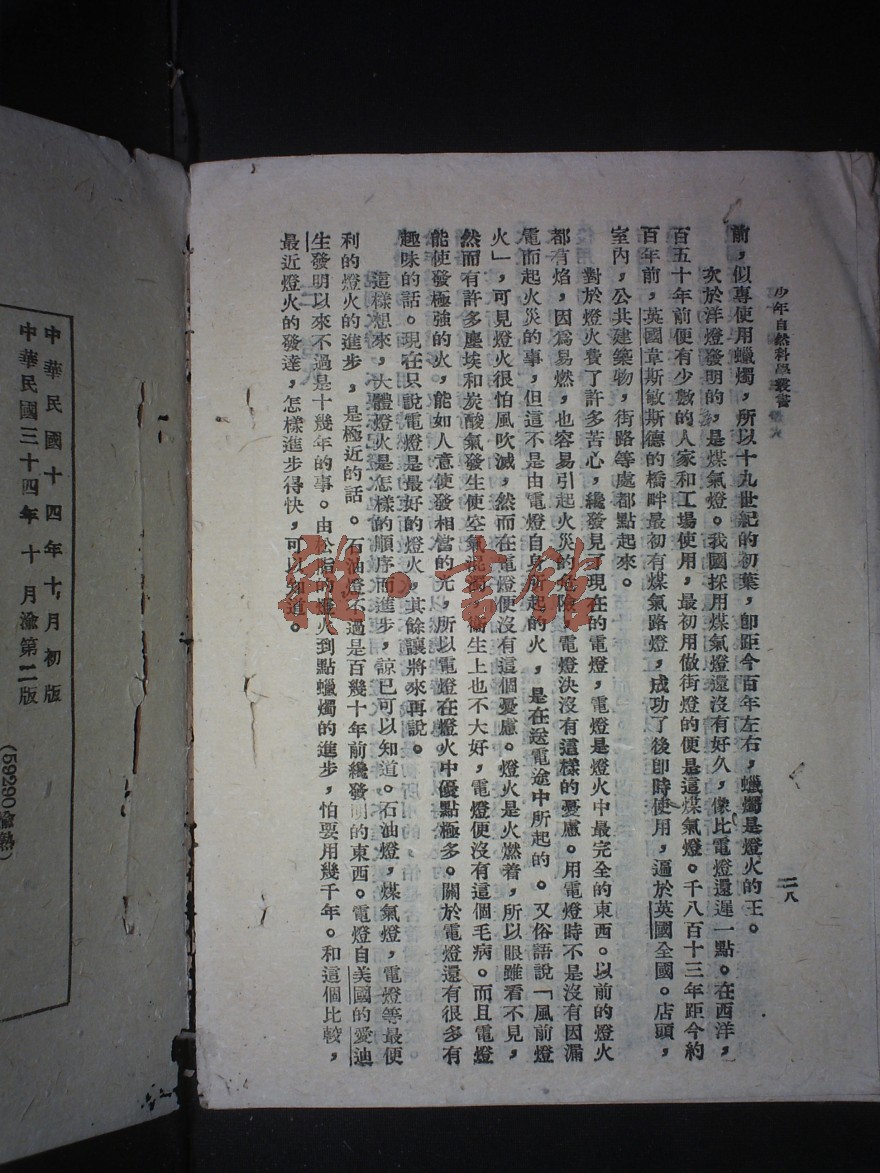 少年自然科學叢書
二八
前，似專使用蠟燭，所以十九世紀的初葉，卽距今百年左右，蠟燭是燈火的王。
次於洋燈發明的，是煤氣燈。我國採用煤氣燈還沒有好久，像比電燈還遲一點。在西洋，
百五十年前便有少數的人家和工場使用，最初用做街燈的便是這煤氣燈。千八百十三年距今約
百年前，英國韋斯敏斯德的橋畔最初有煤氣路燈，成功了後卽時使用，遍於英國全國。店頭，
室內，公共建築物，街路等處都點起來。
對於燈火費了許多苦心，纔發見了現在的電燈，電燈是燈火中最完全的東西。以前的燈火
都有焰，因爲易燃，也容易引起火災的危險，電燈決沒有這樣的憂慮。用電燈時不是沒有因漏
電而起火災的事，但這不是由電燈自身所起的火，是在送電途中所起的。又俗語說「風前燈
火」，可見燈火很怕風吹滅，然而在電燈便沒有這個憂慮。燈火是火燃着，所以眼雖看不見，
然而有許多塵埃和炭酸氣發生使空氣混濁，衞生上也不大好，電燈便沒有這個毛病。而且電燈
能使發極強的火，能如人意使發相當的光，所以電燈在燈火中優點極多。關於電燈還有很多有
趣味的話。現在只說電燈是最好的燈火，其餘讓將來再說。
這樣想來，大體燈火是怎樣的順序而進步，諒已可以知道。石油燈，煤氣燈，電燈等最便
利的燈火的進步，是極近的話。石油燈不過是百幾十年前纔發明的東西。電燈自美國的愛迪
生發明以來不過是十幾年的事。由松脂的燈火到點蠟燭的進步，怕要用幾千年。和這個比較，
最近燈火的發達，怎樣進步得快，可以知道。
中華民國十四年十月初版
中華民國三十四年十月渝第二版
(59290渝熟)
雅・書館